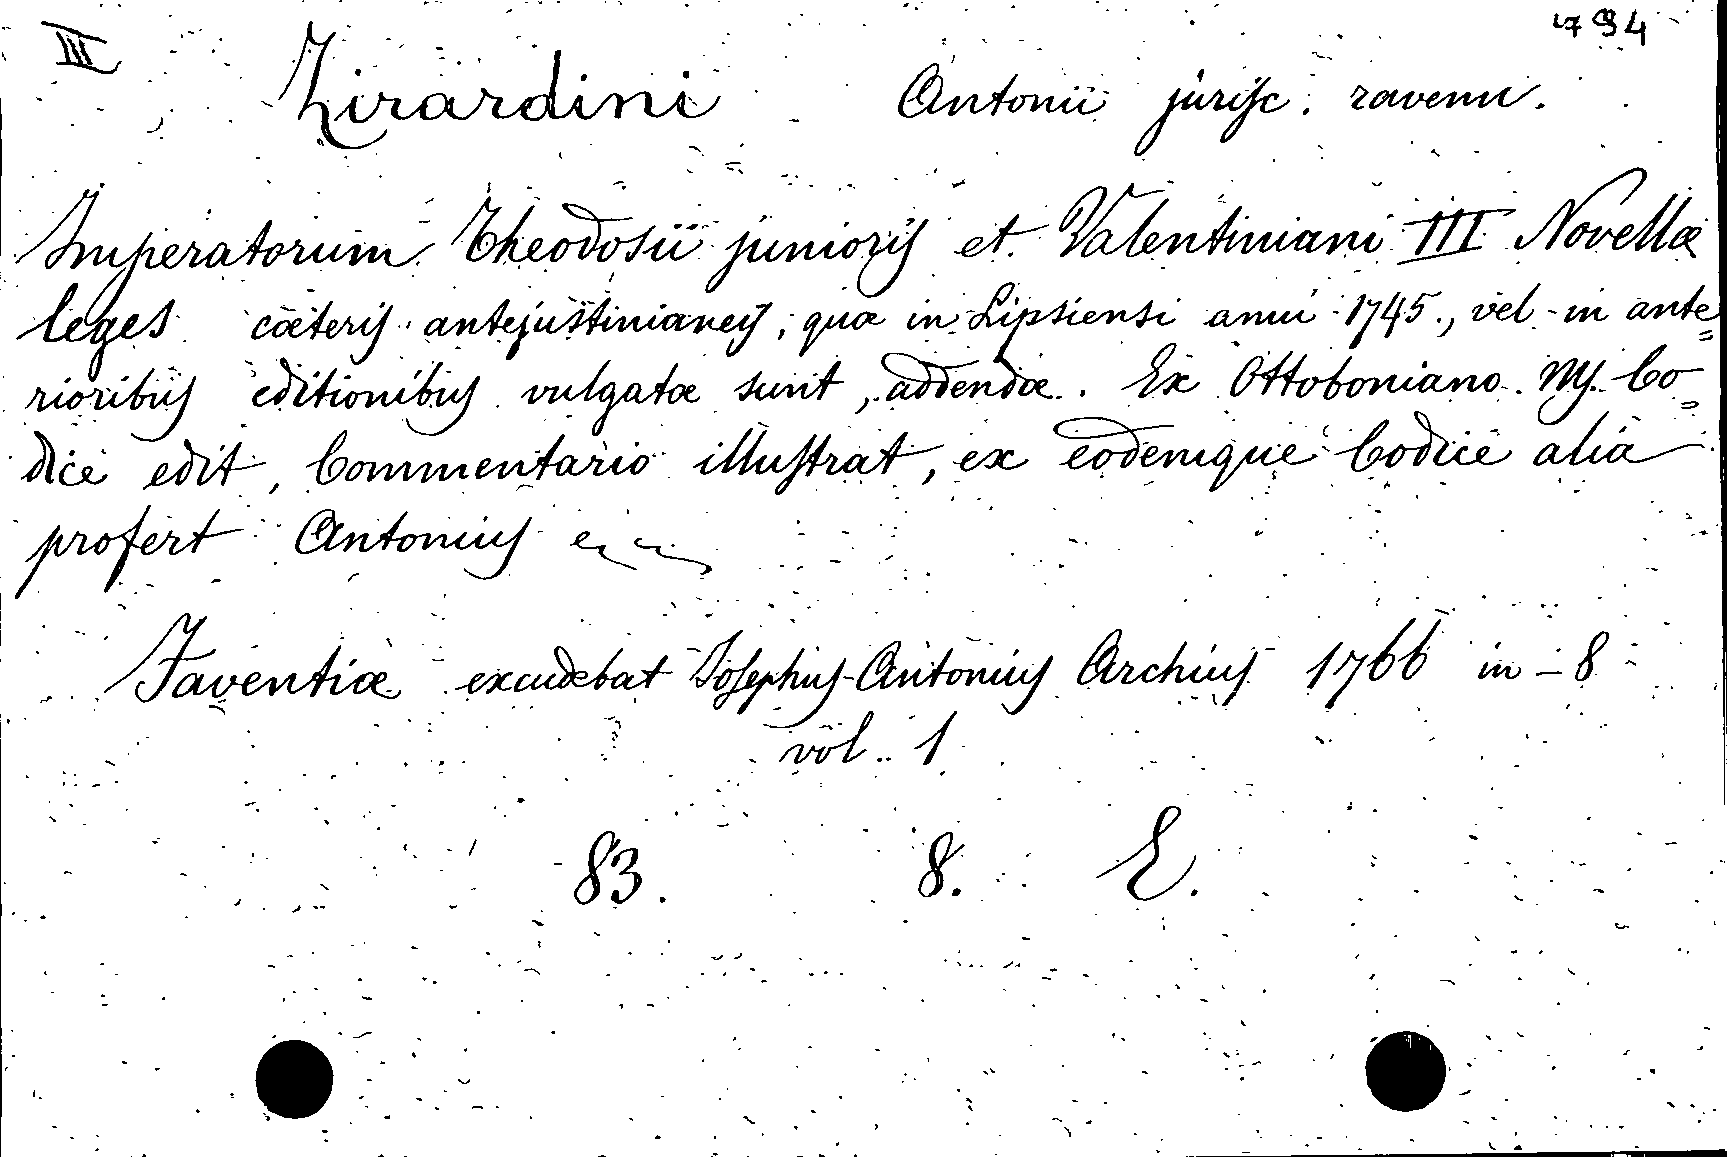 III
794
Zirardini Antonii jurisc. ravenn.
Imperatorum Theodosii junioris et Valentiniani III Novellæ
leges cæteris antejustinianeis, quæ in Lipsiensi anni 1745., vel in ante=
rioribus editionibus vulgatæ sunt, addendæ. Ex Ottoboniano Ms. Co=
dice edit, Commentario illustrat, ex eodemque Codice alia
profert Antonius
Faventiæ excudebat Josephus-Antonius Archius 1766 in-8
vol. 1
83. 8. E.